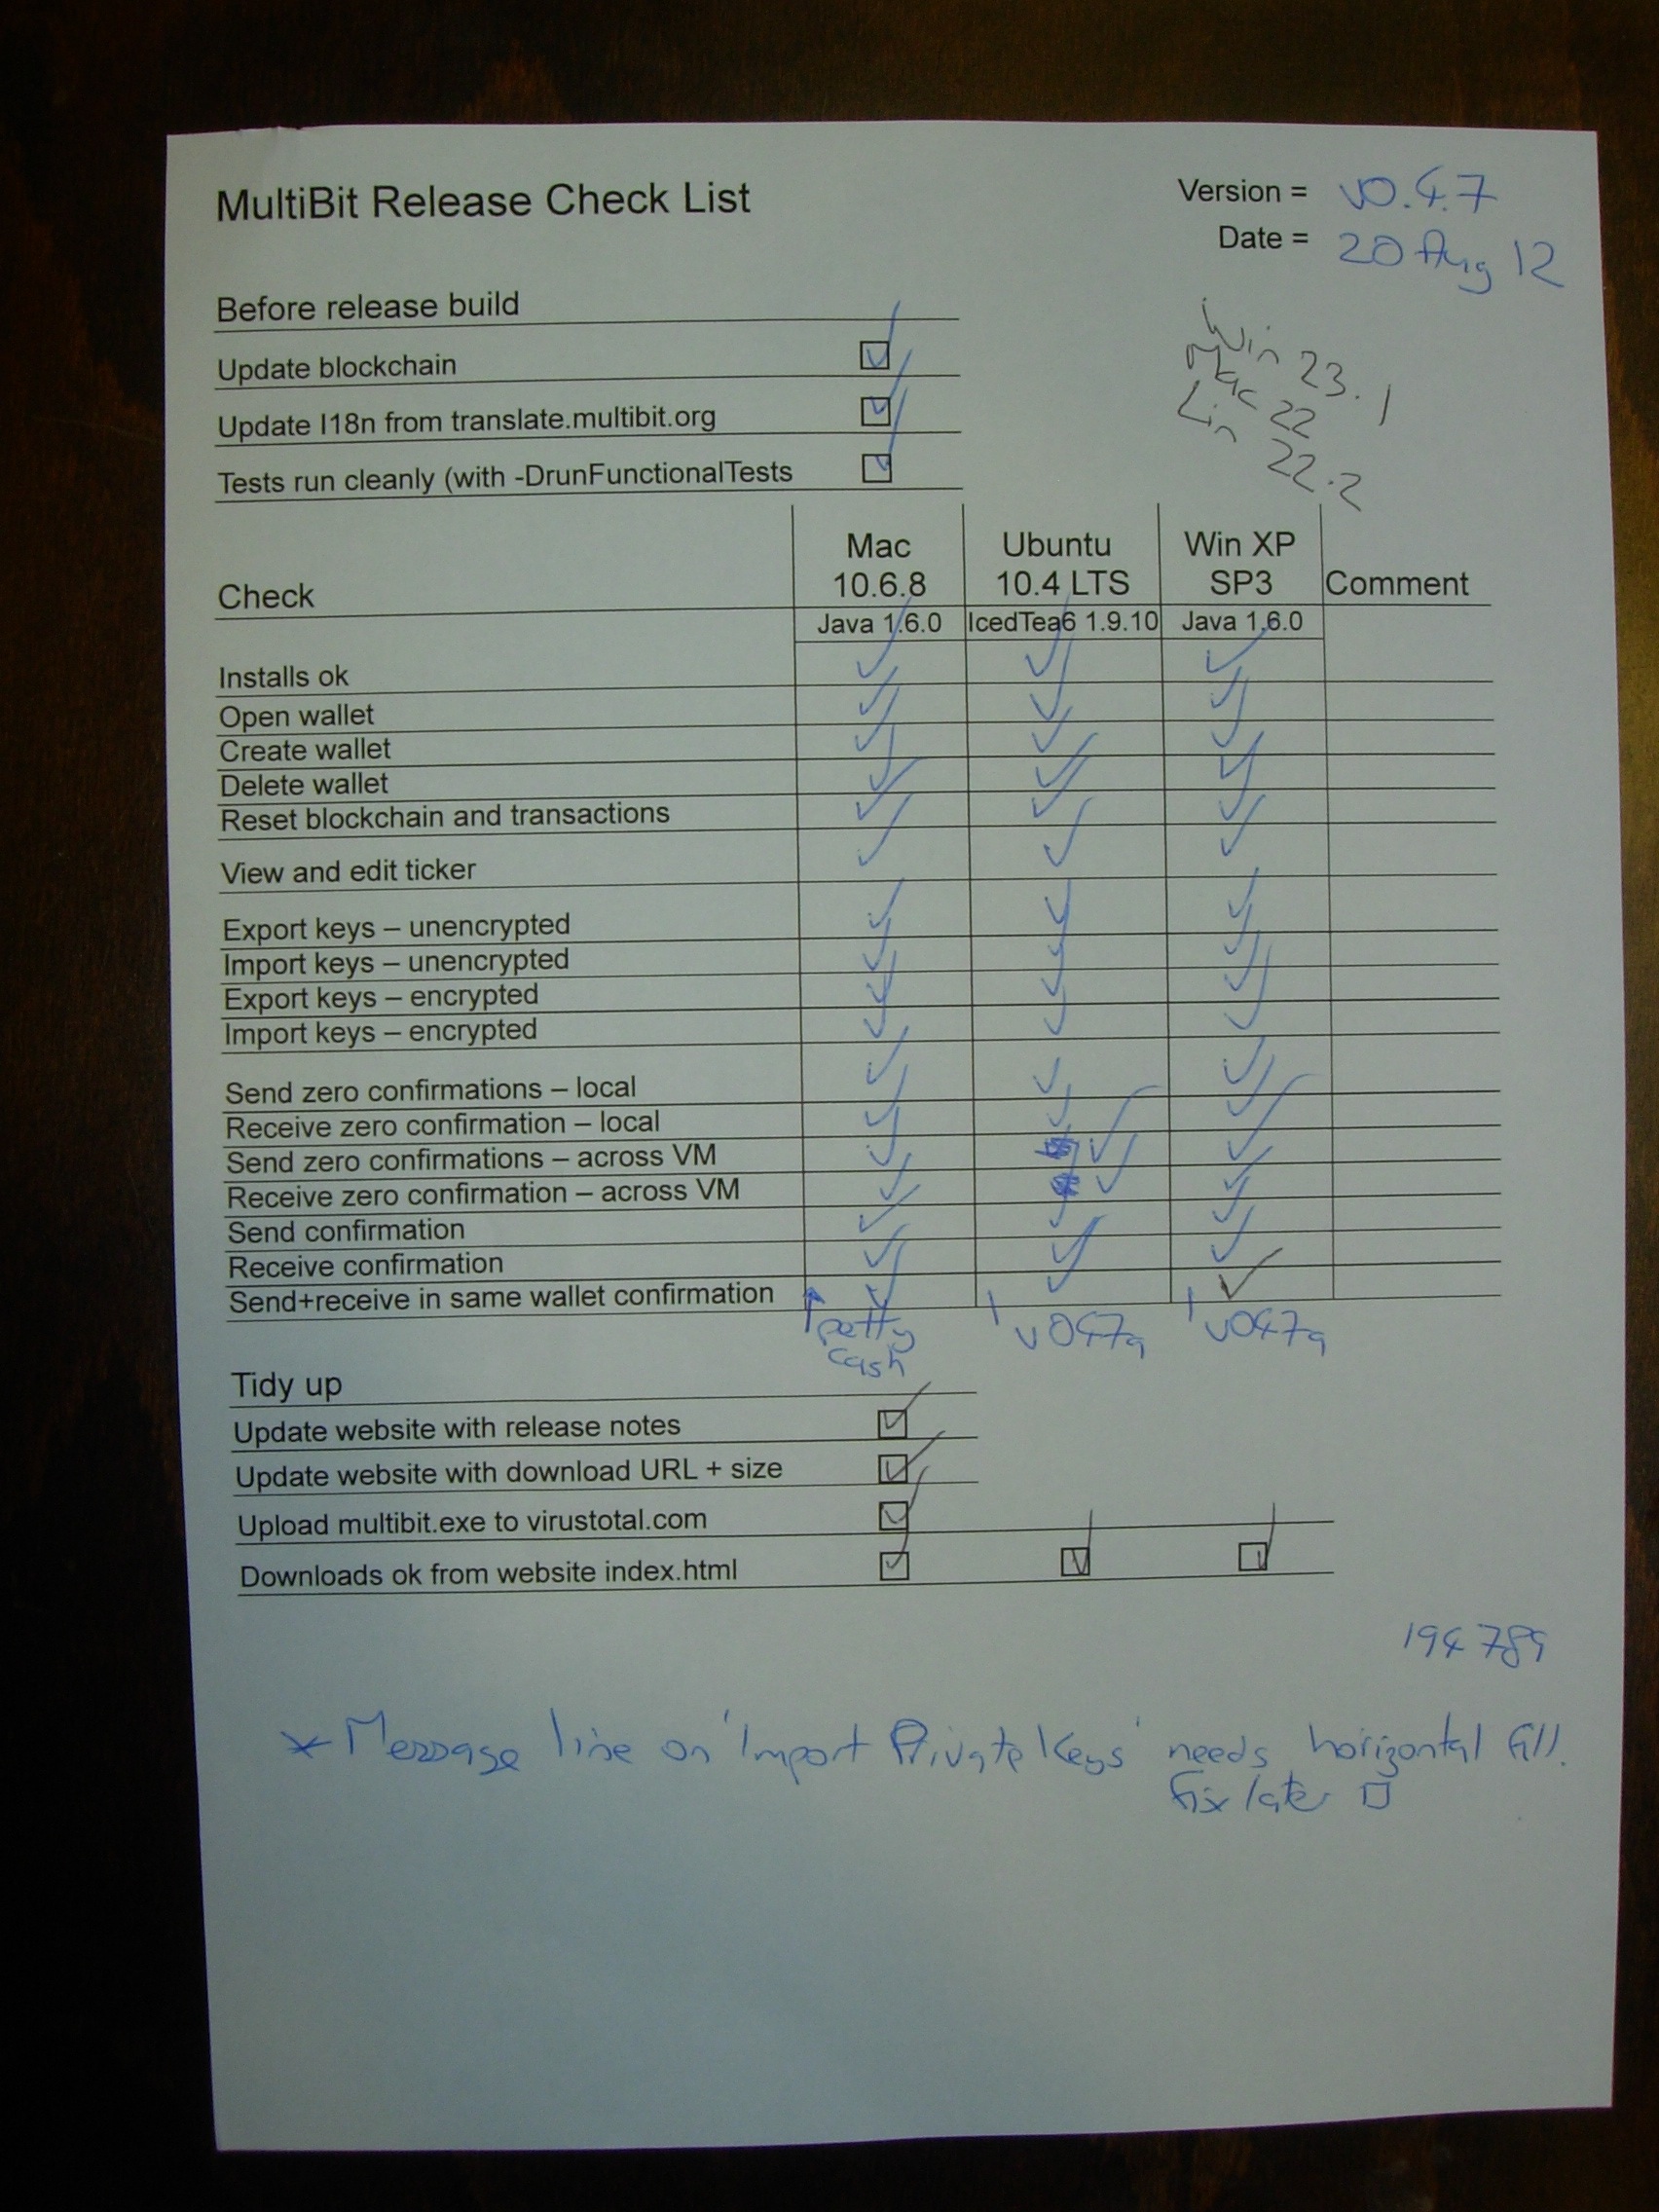 MultiBit Release Check List
Version = v0.4.7
Date = 20 Aug 12
Before release build
Update blockchain
Update I18n from translate.multibit.org
Tests run cleanly (with -DrunFunctionalTests
Win 23.1
Mac 22
Lin 22.2
Check
Mac 10.6.8
Ubuntu 10.4 LTS
Win XP SP3
Comment
Java 1.6.0
IcedTea6 1.9.10
Java 1.6.0
Installs ok
Open wallet
Create wallet
Delete wallet
Reset blockchain and transactions
View and edit ticker
Export keys – unencrypted
Import keys – unencrypted
Export keys – encrypted
Import keys – encrypted
Send zero confirmations – local
Receive zero confirmation – local
Send zero confirmations – across VM
Receive zero confirmation – across VM
Send confirmation
Receive confirmation
Send+receive in same wallet confirmation
petty cash
v047a
v047a
Tidy up
Update website with release notes
Update website with download URL + size
Upload multibit.exe to virustotal.com
Downloads ok from website index.html
194789
* Message line on 'Import Private Keys' needs horizontal fill.
Fix later